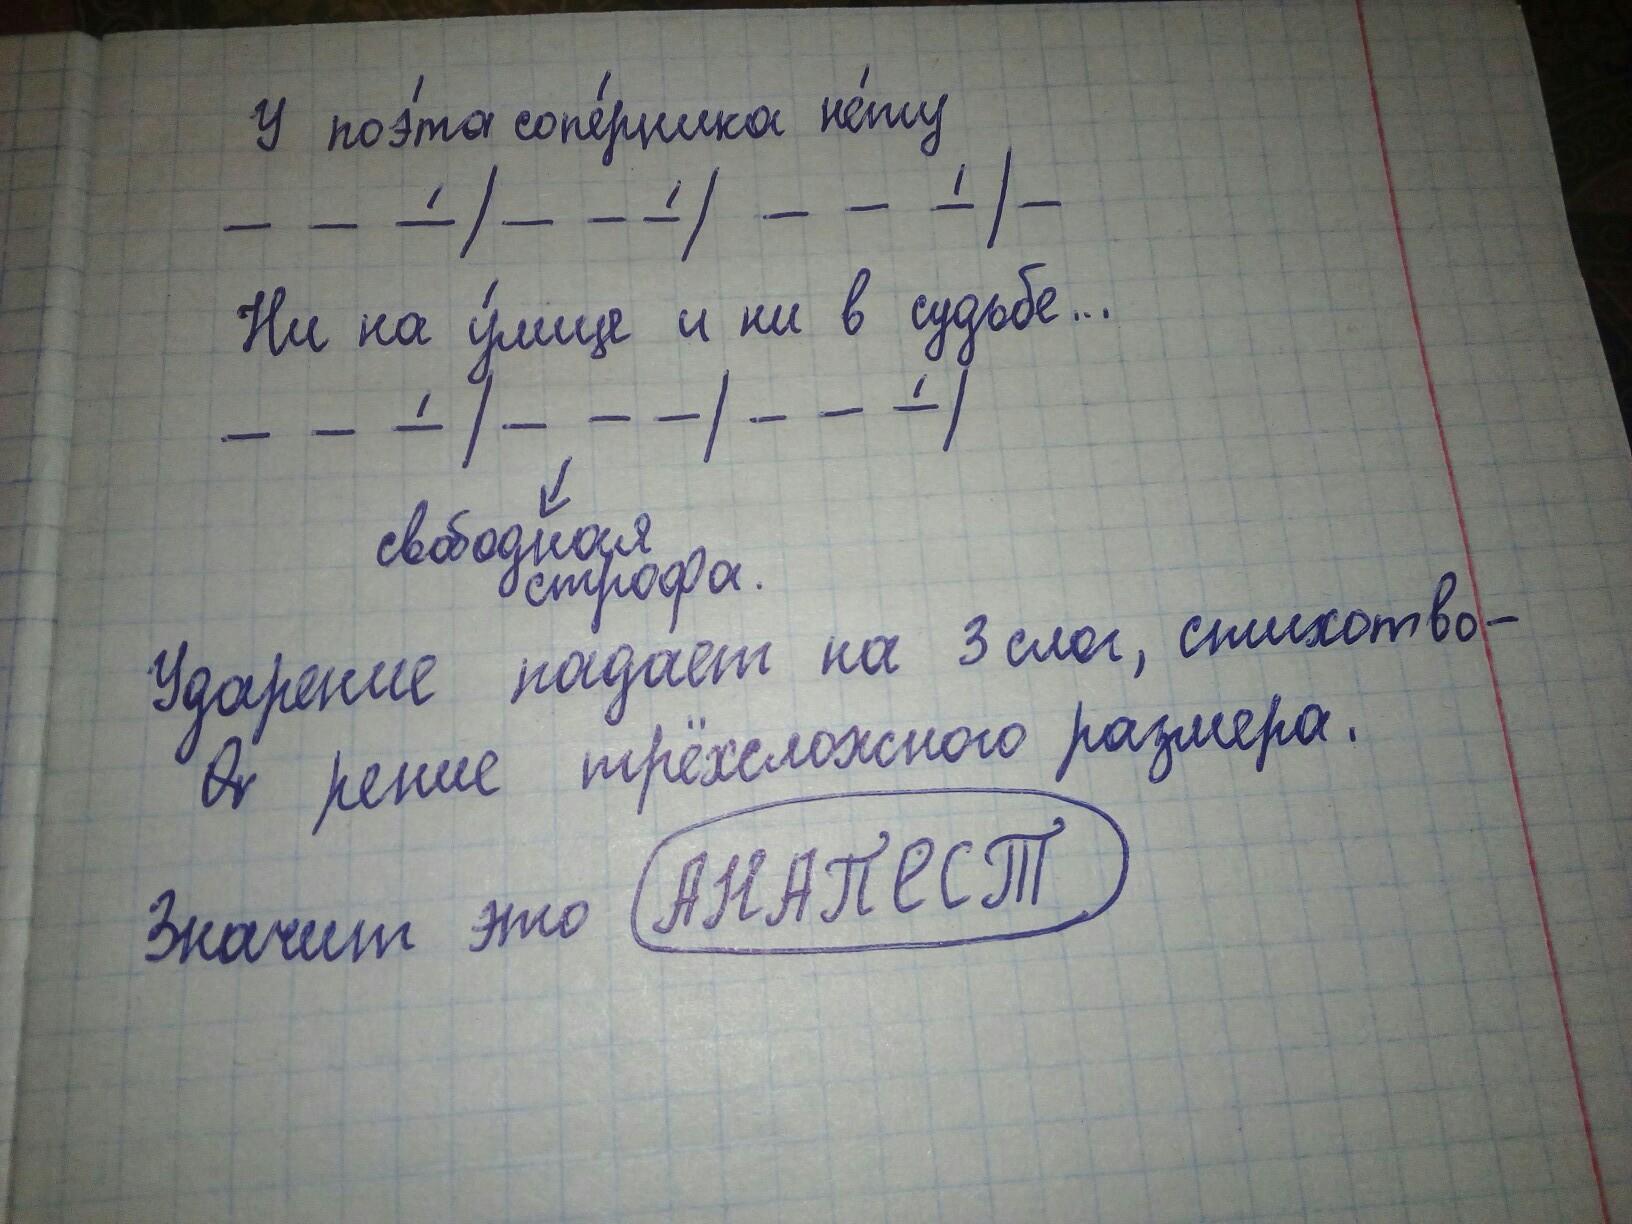 У поэ́та сопе́рника не́ту
_ _ _́ / _ _ _́ / _ _ _́ / _
Ни на у́лице и ни в судьбе...
_ _ _́ / _ _ _ / _ _ _́ /
↙
свободная
строфа.
Ударение падает на 3 слог, стихотво-
рение трёхсложного размера.
Значит это АНАПЕСТ